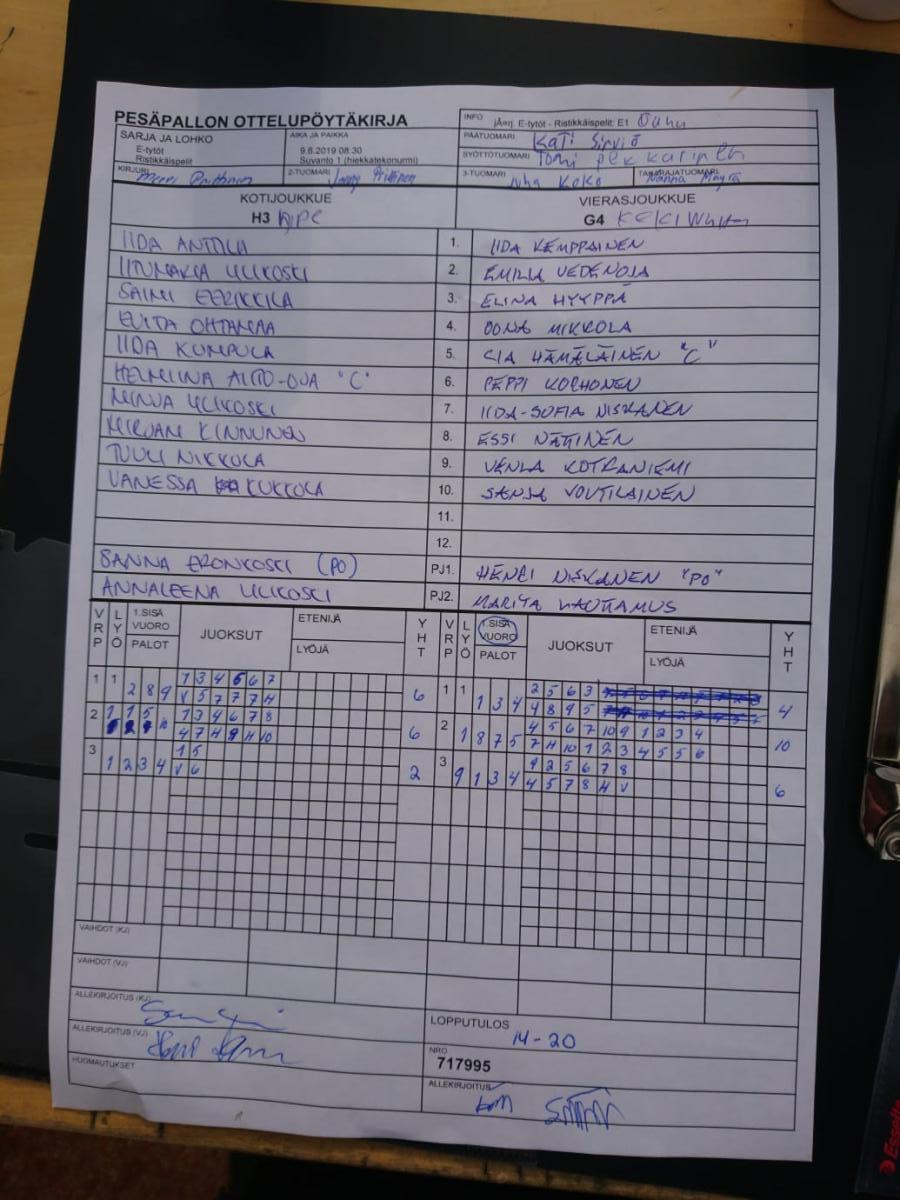 PESÄPALLON OTTELUPÖYTÄKIRJA
INFO jÄrrj. E-tytöt - Ristikkäispelit: E1
SARJA JA LOHKO
E-tytöt
Ristikkäispelit
AIKA JA PAIKKA
9.6.2019 08:30
Suvanto 1 (hiekkatekonurmi)
PÄÄTUOMARI Kati Sirviö
SYÖTTÖTUOMARI Tomi Pekkarinen
KIRJURI
2-TUOMARI
3-TUOMARI Juha Koko
TAKARAJATUOMARI
KOTIJOUKKUE
H3
VIERASJOUKKUE
G4
IIDA ANTTILA 1. IIDA KEMPPAINEN
ULIKOSKI 2. EMILIA VEDENOJA
SAIMI EERIKKILA 3. ELINA HYYPPÄ
OHTAMAA 4. OONA MIKKOLA
IIDA KUMPULA 5. CIA HÄMÄLÄINEN "C"
HELMIINA ALITO-OJA "C" 6. PEPPI KORHONEN
MINJA ULIKOSKI 7. IIDA-SOFIA NISKANEN
MIRJAMI KINNUNEN 8. ESSI NÄTTINEN
TUULI NIKKOLA 9. VENLA KOTRANIEMI
VANESSA KUKKOLA 10. SANJA VOUTILAINEN
11.
12.
SANNA ERONKOSKI (PO) PJ1. HENRI NISKANEN "PO"
ANNALEENA ULIKOSKI PJ2. MARITA
VRP LYÖ 1.SISÄ VUORO PALOT JUOKSUT ETENIJÄ LYÖJÄ YHT VRP LYÖ 1.SISÄ VUORO PALOT JUOKSUT ETENIJÄ LYÖJÄ YHT
1 1 2 8 9 1 3 4 5 6 7 6 1 1 1 3 4 2 5 6 3 4
V 5 7 7 7 H 4 8 9 5
2 1 3 4 6 7 8 6 2 1 8 7 5 4 5 6 7 10 9 1 2 3 4 10
4 7 H 9 H 10 7 H 10 1 2 3 4 5 5 6
3 1 2 3 4 1 5 2 3 9 1 3 4 9 2 5 6 7 8 6
V 6 4 5 7 8 H V
VAIHDOT (KJ)
VAIHDOT (VJ)
ALLEKIRJOITUS (KJ)
ALLEKIRJOITUS (VJ)
HUOMAUTUKSET
LOPPUTULOS
14-20
NRO
717995
ALLEKIRJOITUS
Esselte